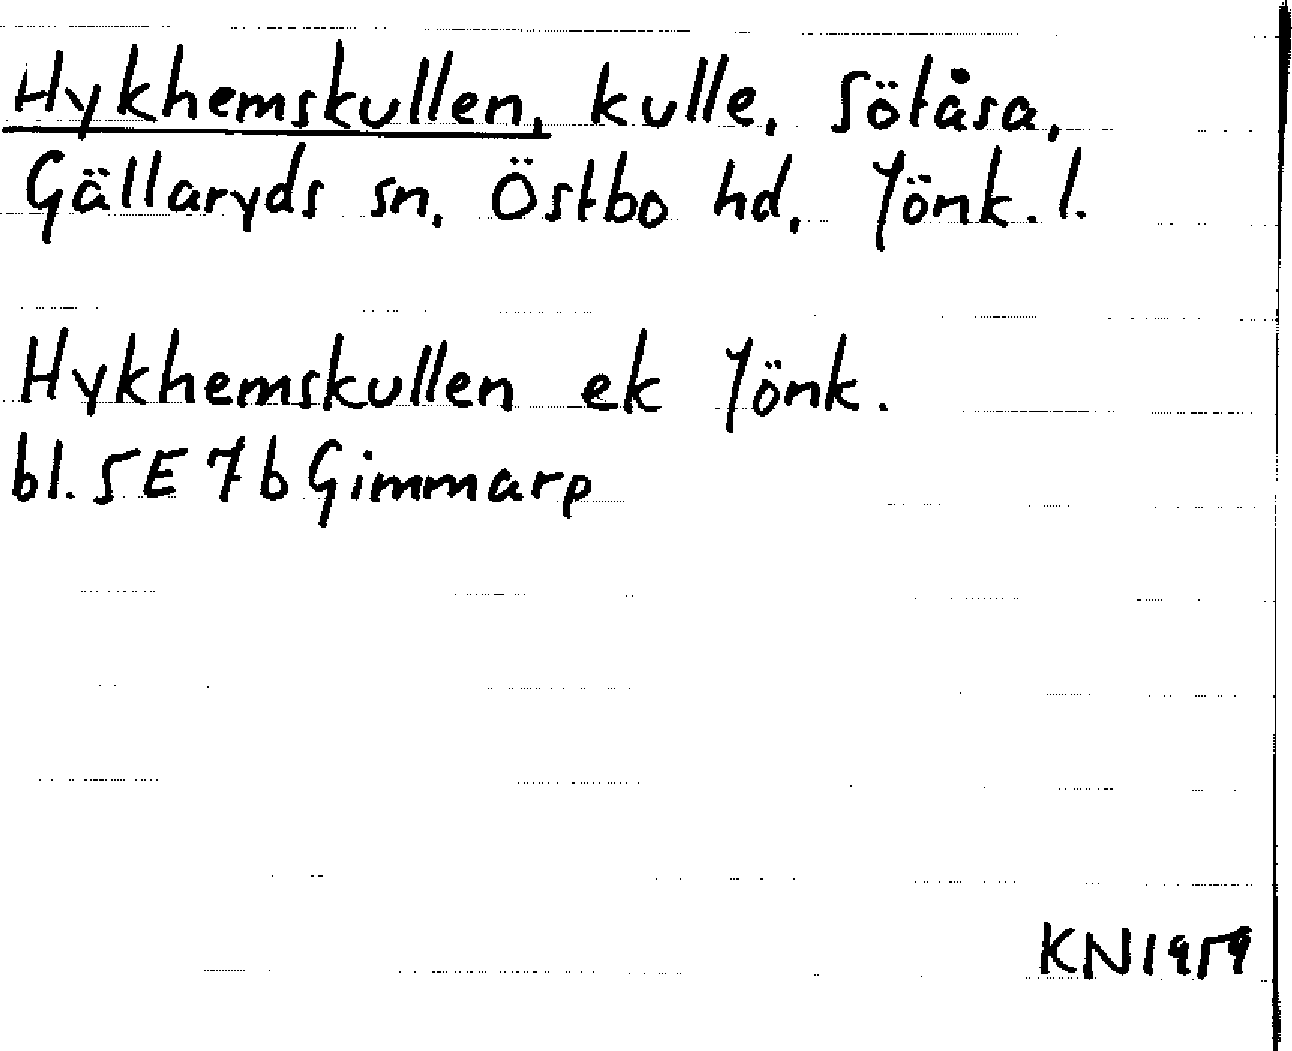 Hykhemskullen, kulle, Sötåsa,
Gällaryds sn, Östbo hd, Jönk. l.
Hykhemskullen ek Jönk.
bl. 5E 7b Gimmarp
KN 1959